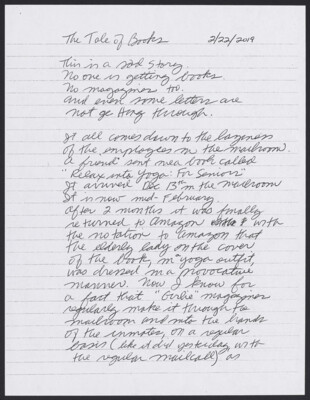 The Tale of Books 2/22/2019
This is a sad story.
No one is getting books
No magazines too.
And even some letters are
not getting through.
It all comes down to the laziness
of the employees in the mailroom.
A friend sent me a book called
"Relax into Yoga for Seniors"
It arrived Dec 13th in the mailroom
It is now mid-February.
After 2 months it was finally
returned to Amazon with
the notation to Amazon that
the elderly lady on the cover
of the book, in "yoga outfit,
was dressed in a provocative
manner. Now I know for
a fact that "Girlie" magazines
regularly make it through the
mailroom and into the hands
of the inmates on a regular
basis (like it did yesterday with
the regular mailcall) as